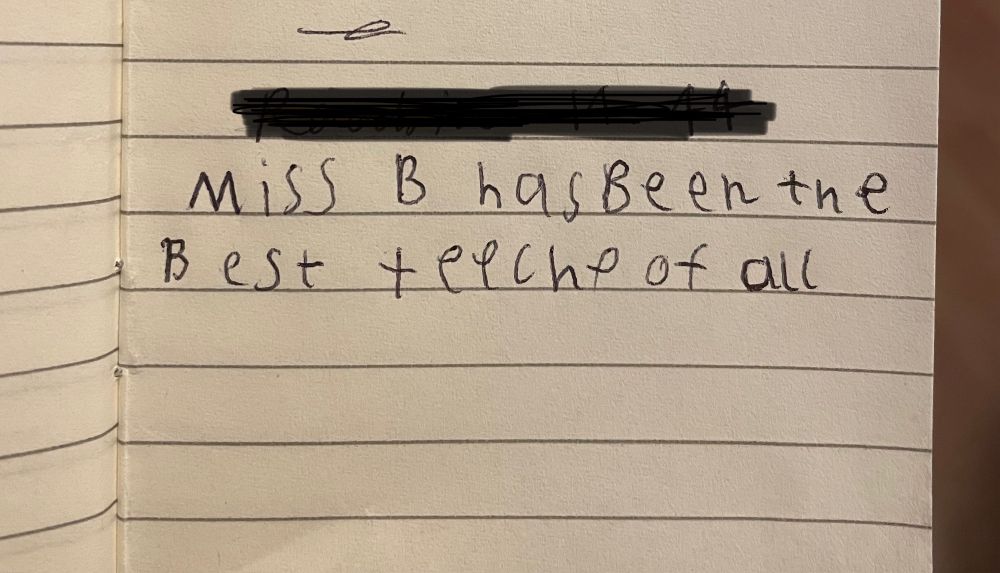 Miss B has Been the
Best teeche of all